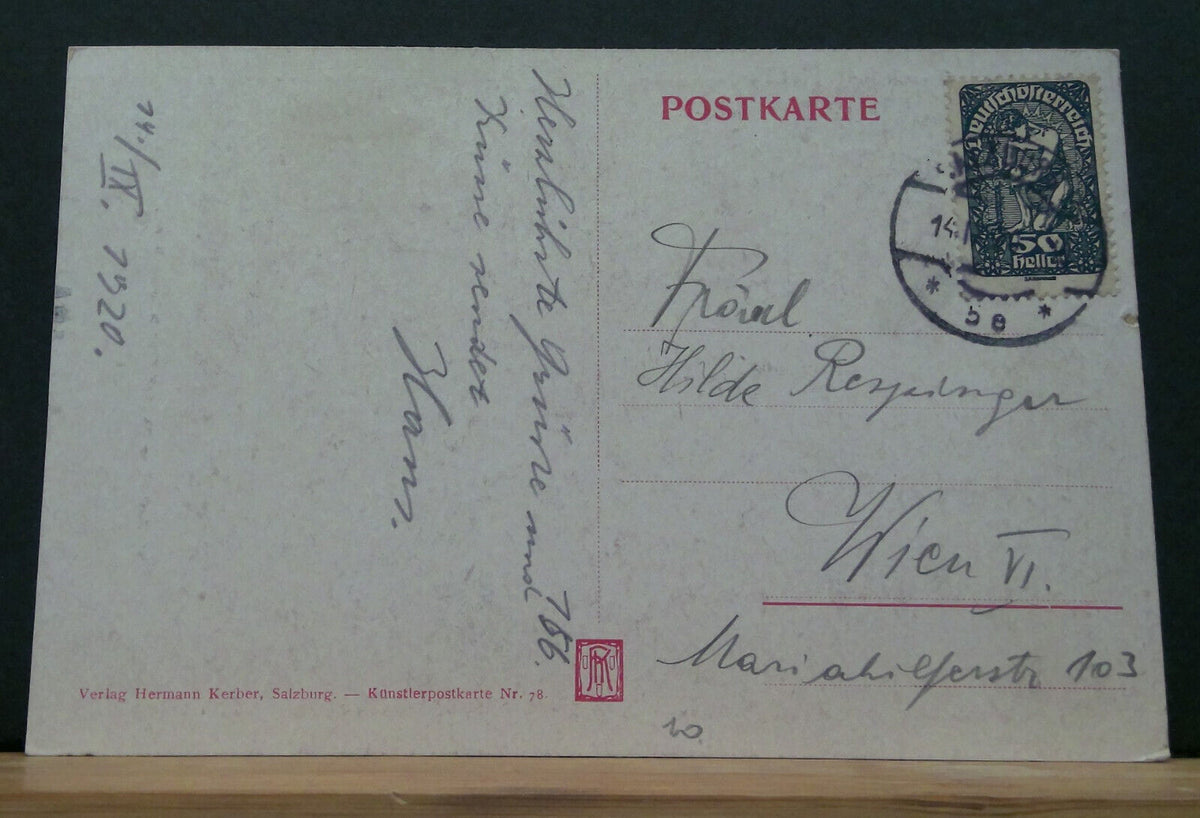 POSTKARTE
Deutschösterreich
50
Heller
14.
5e
Fräul
Hilde Respinger
Wien VI.
Mariahilferstr 103
14/IX. 1920.
Herzlichste Grüsse und
Küsse sendet
Hans.
Verlag Hermann Kerber, Salzburg. — Künstlerpostkarte Nr. 78.